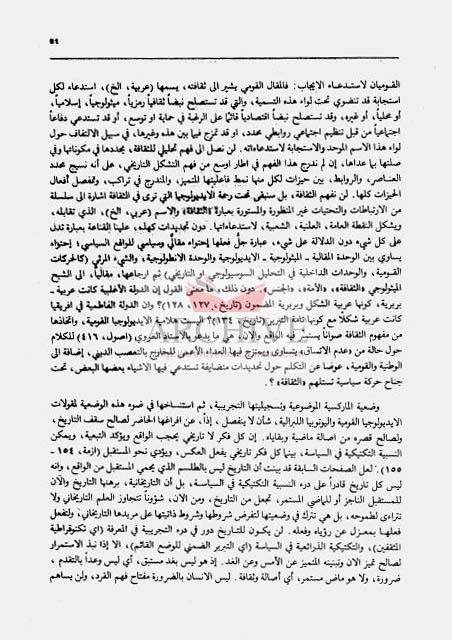 ٩٤
القوميان لاستدعاء الايجاب: فالمقال القومي يشير الى ثقافته، يسمها (عربية، الخ)، استدعاء لكل
استجابة قد تنضوي تحت لواء هذه التسمية، والتي قد تستصلح نبضاً ثقافياً رمزياً، ميثولوجياً، إسلامياً،
أو محلياً، أو غيره، وقد تستصلح نبضاً اقتصادياً قائماً على الرغبة في حماية او توسع، أو قد تستدعي دفاعاً
اجتماعياً من قبل تنظيم اجتماعي روابطي محدد، او قد تمزج فيما بين هذه وغيرها، في سبيل الالتفاف حول
لواء هذا الاسم الموحد والاستجابة لاستدعاءاته. لن نصل الى فهم تحليلي للثقافة، يحددها في مكوناتها وفي
صلتها بما عداها، إن لم ندرج هذا الفهم في اطار اوسع من فهم التشكل التاريخي، على أنه نسيج محدد
العناصر، والروابط، بين حيزات لكل منها نمط فاعليتها المتميز، والمندرج في تراكب، وتمفصل أفعال
الحيزات كلها. لن نفهم الثقافة، بل سنبقى تحت رحمة الايديولوجيا التي ترى في الثقافة اشارة الى سلسلة
من الارتباطات والتحتيات غير المنظورة والمستورة بعبارة «الثقافة» والاسم (عربي، الخ)، الذي تقابله،
ويشكل النقطة العامة، العلنية، الشعبية، لاستدعاءاتها. دون تحديدات كهذه، علينا القناعة بعبارة تدل
على كل شيء دون الدلالة على شيء، عبارة جلّ فعلها إحتواء مقالي وسياسي للواقع السياسي؛ إحتواء
يساوي بين الوحدة المقالية - الميثولوجية - الايديولوجية والوحدة الانطولوجية، والشيء المرئي (كالحركات
القومية، والوحدات الداخلية في التحليل السوسيولوجي او التاريخي) ثم ارجاعها، مقالياً، الى الشبح
الميثولوجي «للثقافة»، و«الأمة»، و«الجنس». دون ذلك، ما معنى القول إن الدولة الأغلبية كانت عربية -
بربرية، كونها عربية الشكل وبربرية المضمون (تاريخ، ١٢٧، ١٢٨)؟ وان الدولة الفاطمية في افريقيا
كانت عربية شكلاً مع كونها تامة التبرير (تاريخ، ١٣٤)؟ اليست هلامية الايديولوجيا القومية، واتخاذها
من مفهوم الثقافة صواناً يستتر فيه الواقع والآن، هي ما يدخل بالاستاذ العروي (اصول، ٤١٦) للكلام
حول حالة من «عدم الانسان» يتساوى ويمتزج فيها العداء الأعمى للخارج بالتعصب الديني، إضافة الى
الوطنية والقومية، عوضاً عن التكلم حول تحديدات متضايفة تستدعي فيها الاشياء بعضها البعض، تحت
جناح حركة سياسية تستلهم «الثقافة» ؟.
وضعية الماركسية الموضوعية وتسجيليتها التجريبية، ثم استنساخها في ضوء هذه الوضعية لمقولات
الايديولوجيا القومية واليوتوبيا اللبرالية، شأن لا ينفصل، إذاً، عن افراغها الحاضر لصالح سقف التاريخ،
ولصالح قصره من اصالة ماضية وبقاياه. إن كل فكر لا تاريخي يحجب الواقع ويؤكد التبعية، ويمكن
النسبية التكتيكية في السياسة، بينما كل فكر تاريخي يفعل العكس، ويؤدي نحو المستقبل (ازمة، ١٥٤ -
١٥٥). لعل الصفحات السابقة قد بينت أن التاريخ ليس بالطلسم الذي يحمي المستقبل من الواقع، وانه
ليس كل تاريخ قادراً على درء النسبية التكتيكية في السياسة، بل أن التاريخانية، برهنها التاريخ والآن
للمستقبل الناجز أو للماضي المستمر، تجعل من التاريخ، ومن الان، شؤوناً تتجاوز العلم التاريخاني ولا
تتراءى لطموحه، بل هي تترك في وضعيتها لتفرض شروطها وشروط ذاتيتها على مريدها التاريخاني، ولتفعل
فعلها بمعزل عن رؤياه وفعله. لن يكون للتاريخ دور في درء التجريبية في المعرفة (اي تكنوقراطية
المثقفين)، والتكتيكية الذرائعية في السياسة (اي التبرير الضمني للوضع القائم)، الا إذا نبذ الاستمرار
لصالح تميز الان وتبينه المتميز عن الأمس وعن الغد. إذ هو ليس بغد مستبق، أي ليس وعداً بالتقدم،
ضرورة، ولا هو ماض مستمر، أي أصالة وثقافة. ليس الانسان بالضرورة مفتاح فهم القرد، ولن يساهم